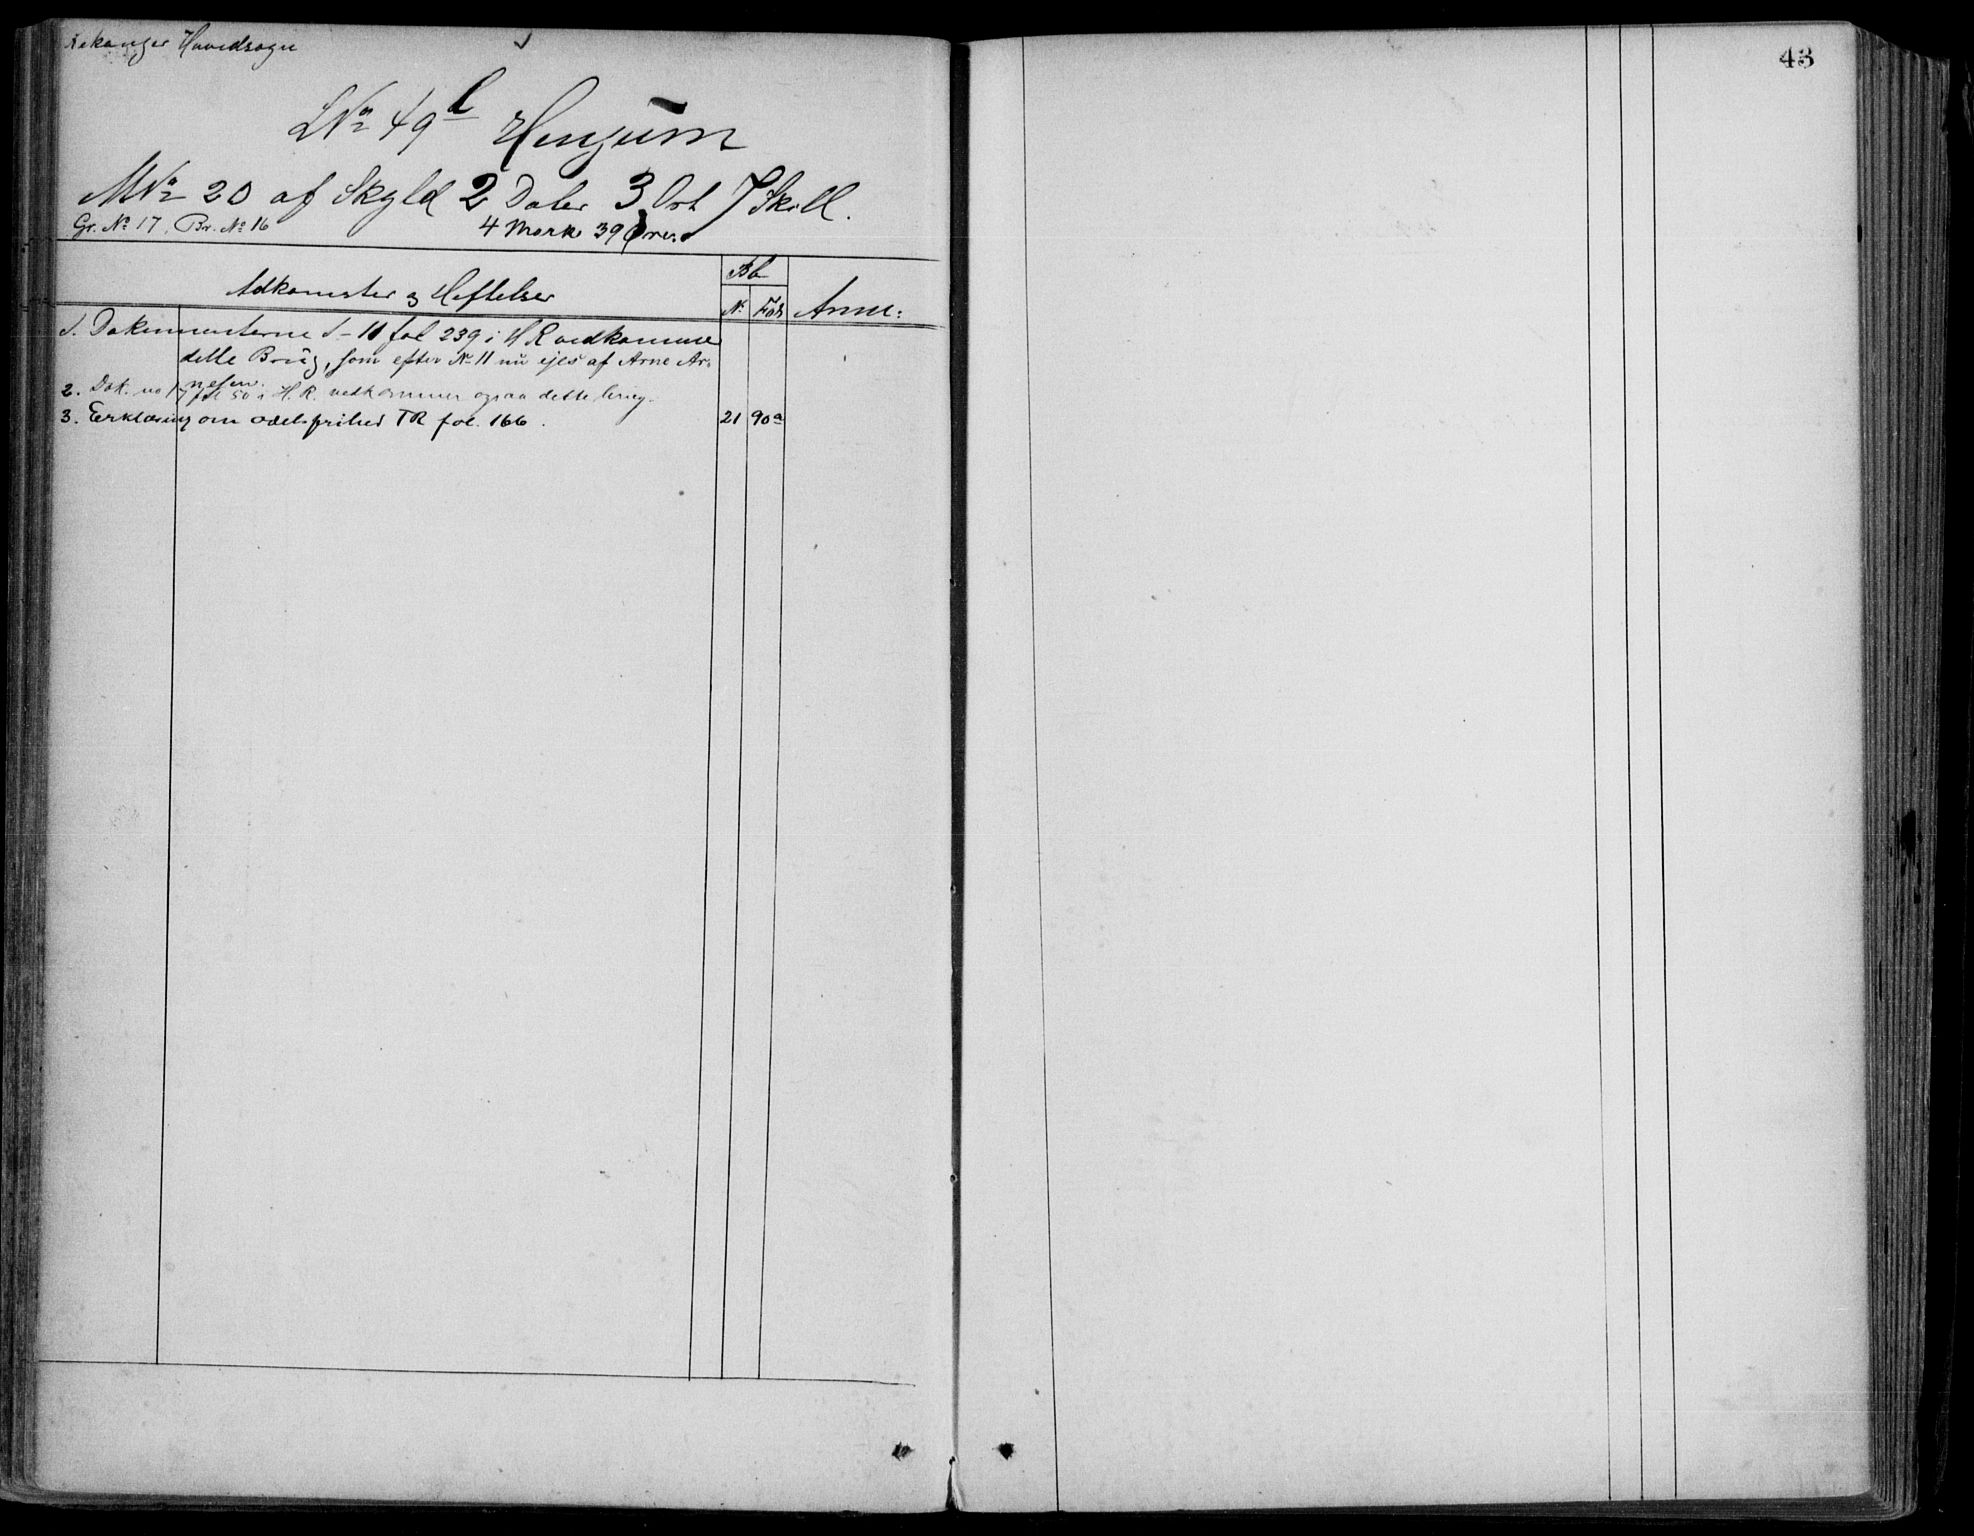 Lekanger Hovedsogn
LNo 49 l Henjum
MNo 20 af Skyld 2 Daler 3 Ort 7 Skill.
Gr. No 17, Br. No 16 4 Mark 39 Øre.
Adkomster og Heftelser
Bb
N. Fol
Anm:
1. Dokumenterne 1-11 fol 239 i HR vedkommer
dette Brug, som efter No 11 nu ejes af Arne Ar-
nesen.
2. Dok. no 17 fol 50 i H.R. vedkommer ogsaa dette brug.
3. Erklæring om odelsfrihed TR fol. 166. 21 90a
43